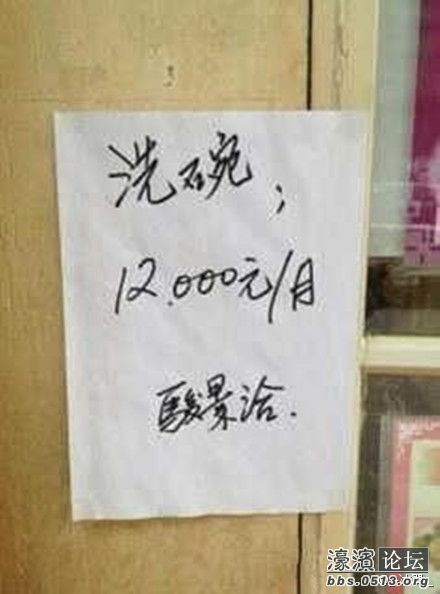 洗碗;
12.000元/月
駿景洽.
濠濱论坛
bbs.0513.org